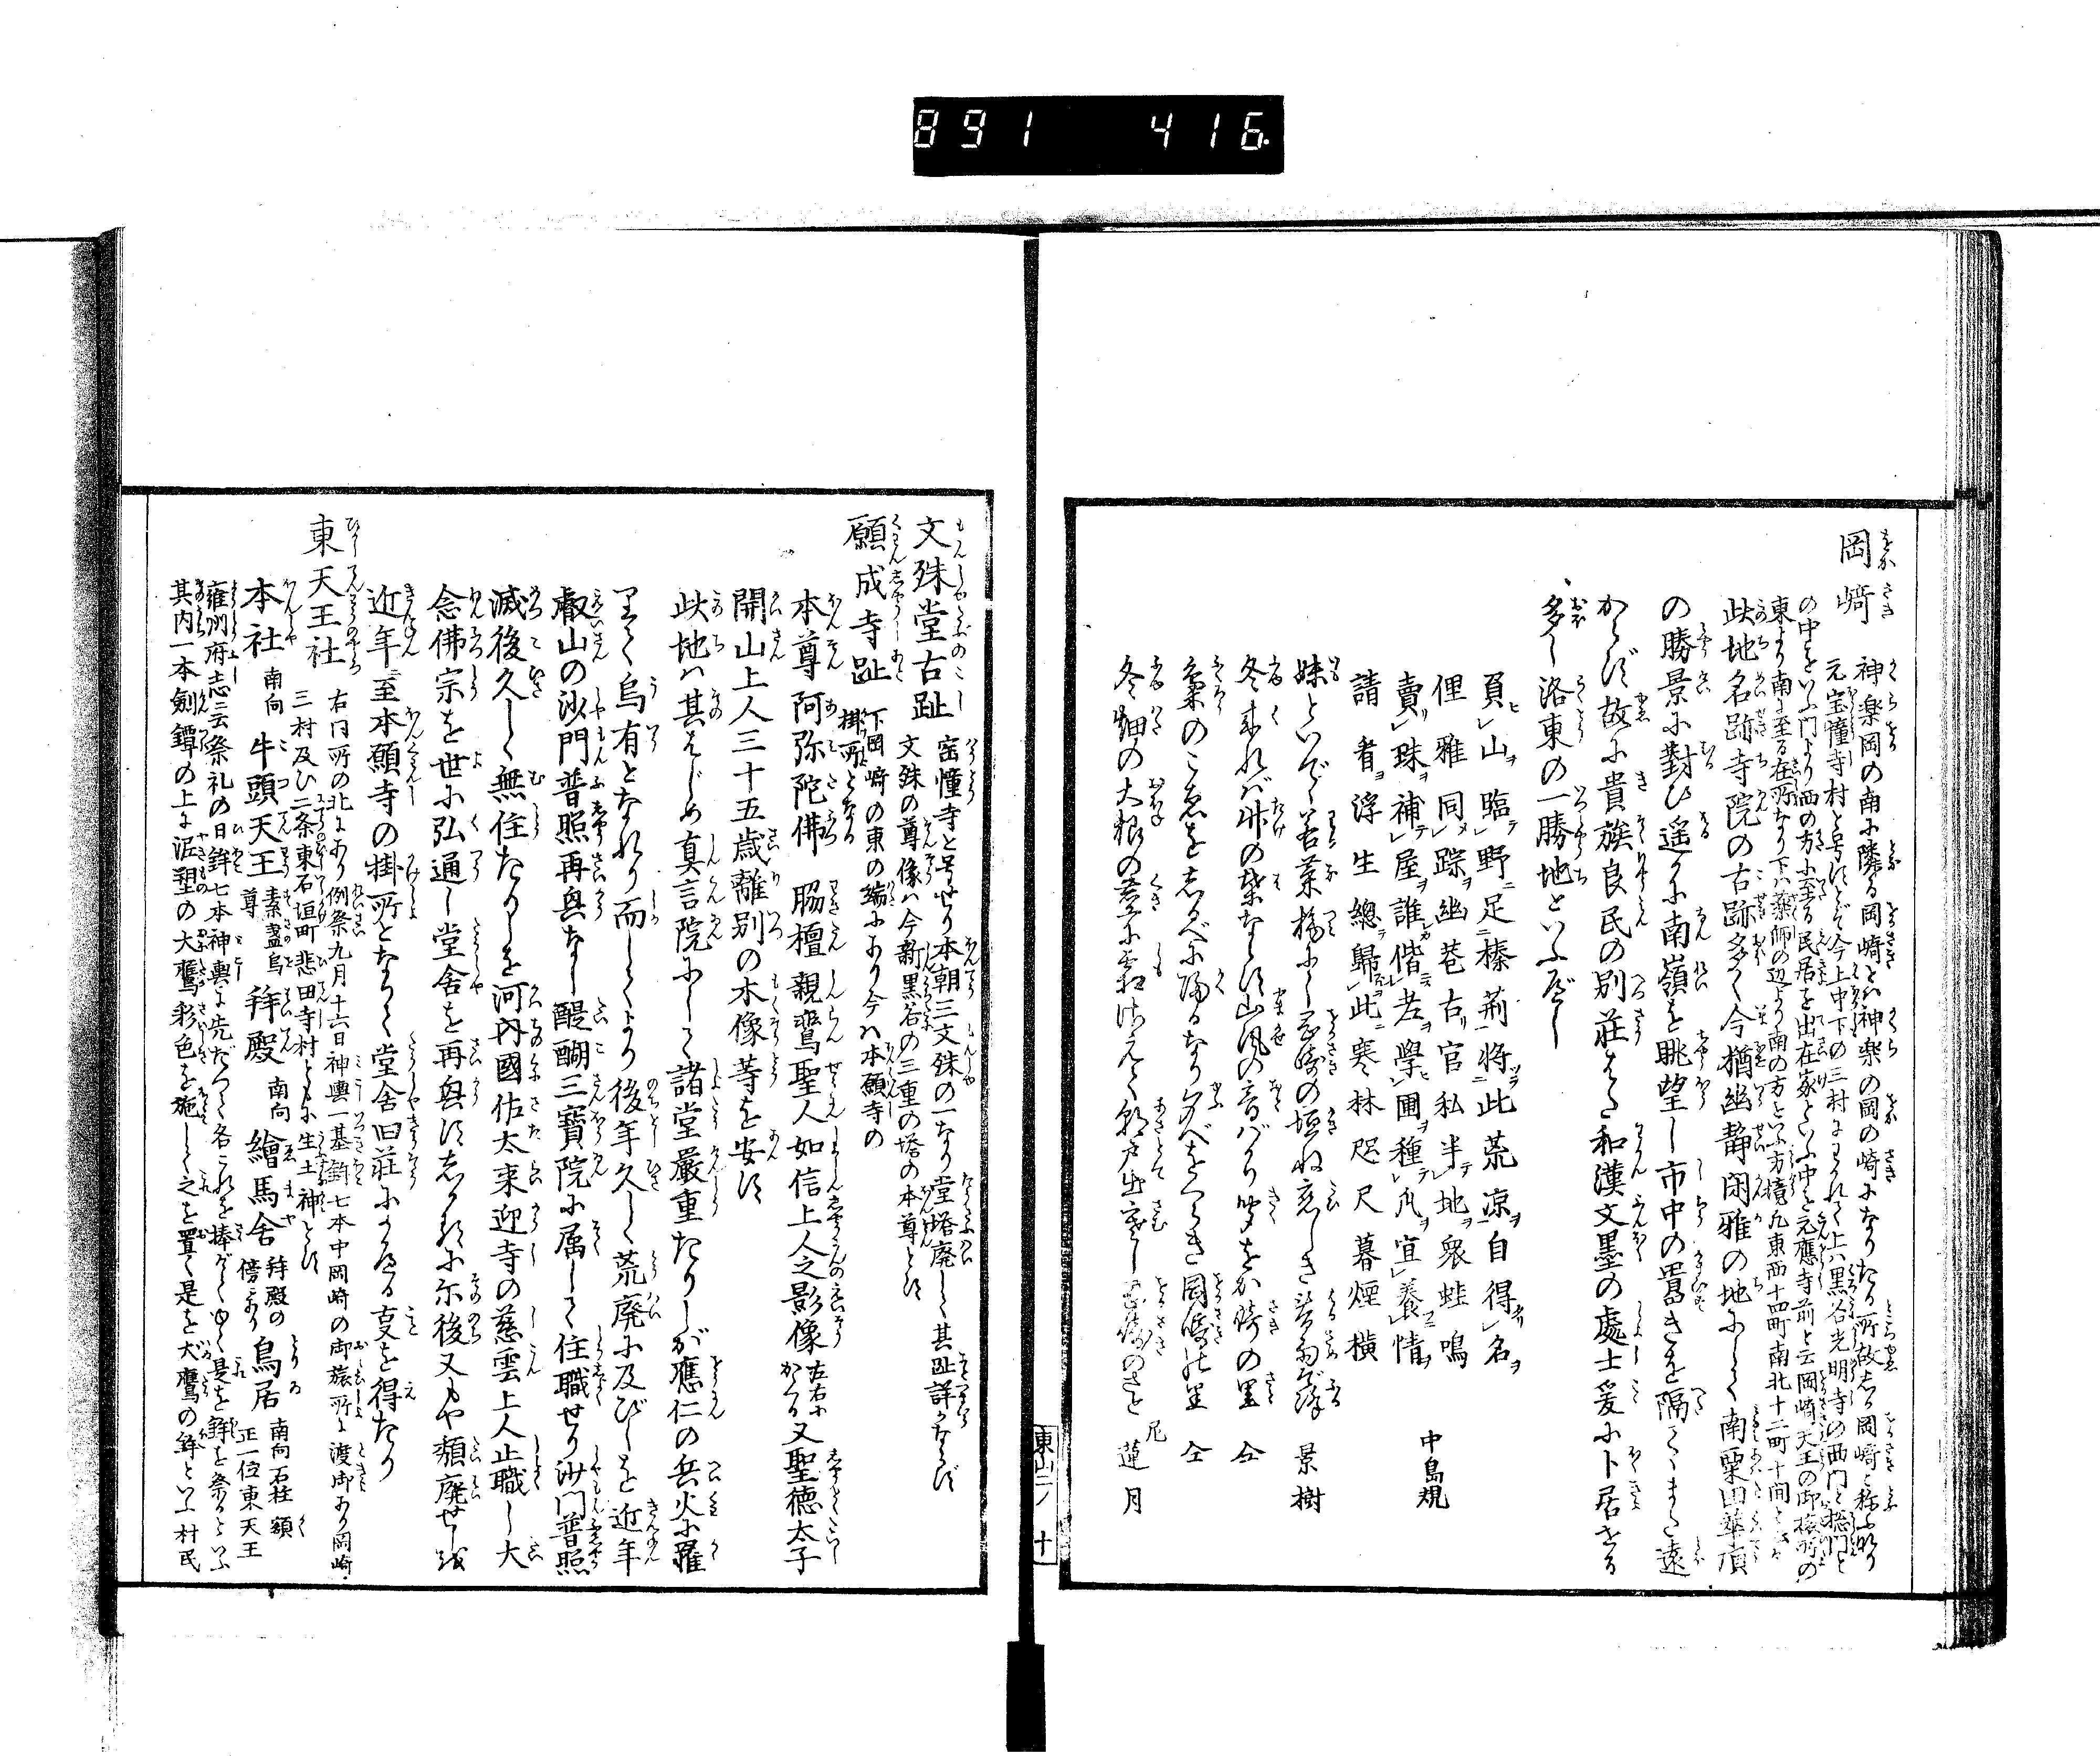 891 416
岡崎
神楽岡の南に隣る岡崎とは神楽の岡の崎になりたる所故しか岡崎と称ふ
元宝憧寺村と号すとぞ今上中下の三村にわかれて上ハ黒谷光明寺の西門と総門と
の中をいふ門より西の方に至る民居を出在家といふ中を元應寺前と云岡崎天王の御旅所の
東より南に至る在所なり下ハ薬師の辺より南の方をいふ方境凡東西十四町南北十二町十間
此地名跡寺院の古跡多く今猶幽静閑雅の地にして南粟田華頂
の勝景に對ひ遥かに南嶺を眺望し市中の囂きを隔てゝまた遠
からず故に貴族良民の別荘また和漢文墨の處士爰に卜居する
多し洛東の一勝地といふべし
負レ山ヲ臨テレ野ニ足ニ榛荊一將ニツヲ此荒涼ヲ一自得ルレ名ヲ
俚雅同メレ踪ヲ幽巷古リ官私半テレ地ヲ衆蛙鳴
賣リレ珠ヲ補テレ屋ヲ誰カ偕ニレ老ヲ學ヒレ圃ヲ種レ凡ヲ宜レ養フニ情ヲ
請看ヨ浮生總テ歸スルヲレ此ニ寒林咫尺暮煙横
中島規
妹といでゝ若菜摘にし岡崎の垣ね恋しき春雨ぞ降 景樹
冬来れバ竹の葉ならす山風の音バかり聞をか崎の里 仝
梟のこゑをしるべに帰るなり夕べをぐらき岡崎の里 仝
冬畑の大根の茎に霜さえて朝戸出寒し岡崎のさと 尼蓮月
東山二ノ十
文殊堂古趾
宝憧寺と号せり本朝三文殊の一なり堂塔廃して其趾詳かならず
文殊の尊像ハ今新黒谷の三重の塔の本尊とす
願成寺趾
下岡崎の東の端にあり今ハ本願寺の
掛所となる
本尊阿弥陀佛 脇檀親鸞聖人如信上人之影像左右にかくる又聖徳太子
開山上人三十五歳離別の木像等を安ず
此地ハ其はじめ真言院にして諸堂嚴重たりしが應仁の兵火に罹
りて烏有となれり而してより後年久しく荒廃に及びしを近年
叡山の沙門普照再興なし醍醐三寶院に属して住職せり沙門普照
滅後久しく無住たりしを河内國佐太来迎寺の慈雲上人止職し大
念佛宗を世に弘通し堂舎を再興すしかるに尓後又もや頽廃せしを
近年至本願寺の掛所となりて堂舎旧荘にかへる事を得たり
東天王社
右同所の北にあり例祭九月十六日神輿一基鉾七本中岡崎の御旅所に渡御あり岡崎
三村及ひ二条東石垣町悲田寺村ともに生土神とす
本社 南向 牛頭天王 素盞烏尊 拜殿 南向 繪馬舎 拜殿の傍にあり 鳥居 南向石柱額 正一位東天王
雍州府志云祭礼の日鉾七本神輿に先だつて各これを捧げてゆく是を鉾を祭るといふ
其内一本劍鐔の上に泥塑の大鷹彩色を施してこれを置く是を大鷹の鉾といふ村民